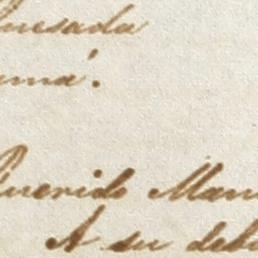 Quesada
Querido Man
A su deb